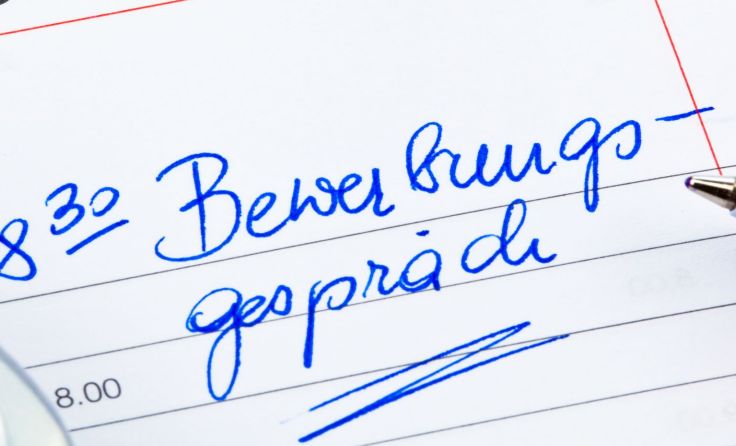 8 30 Bewerbungs-
gespräch
8.00